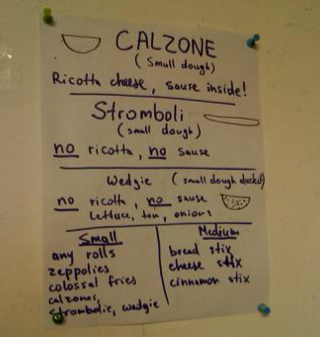 CALZONE
(Small dough)
Ricotta cheese, sause inside!
Stromboli
(small dough)
no ricotta, no sause
Wedgie (small dough docked)
no ricotta, no sause
lettuce, tom, onions
Small
any rolls
zeppolies
colossal fries
calzones,
strombolie, wedgie
Medium
bread stix
cheese stix
cinnamon stix